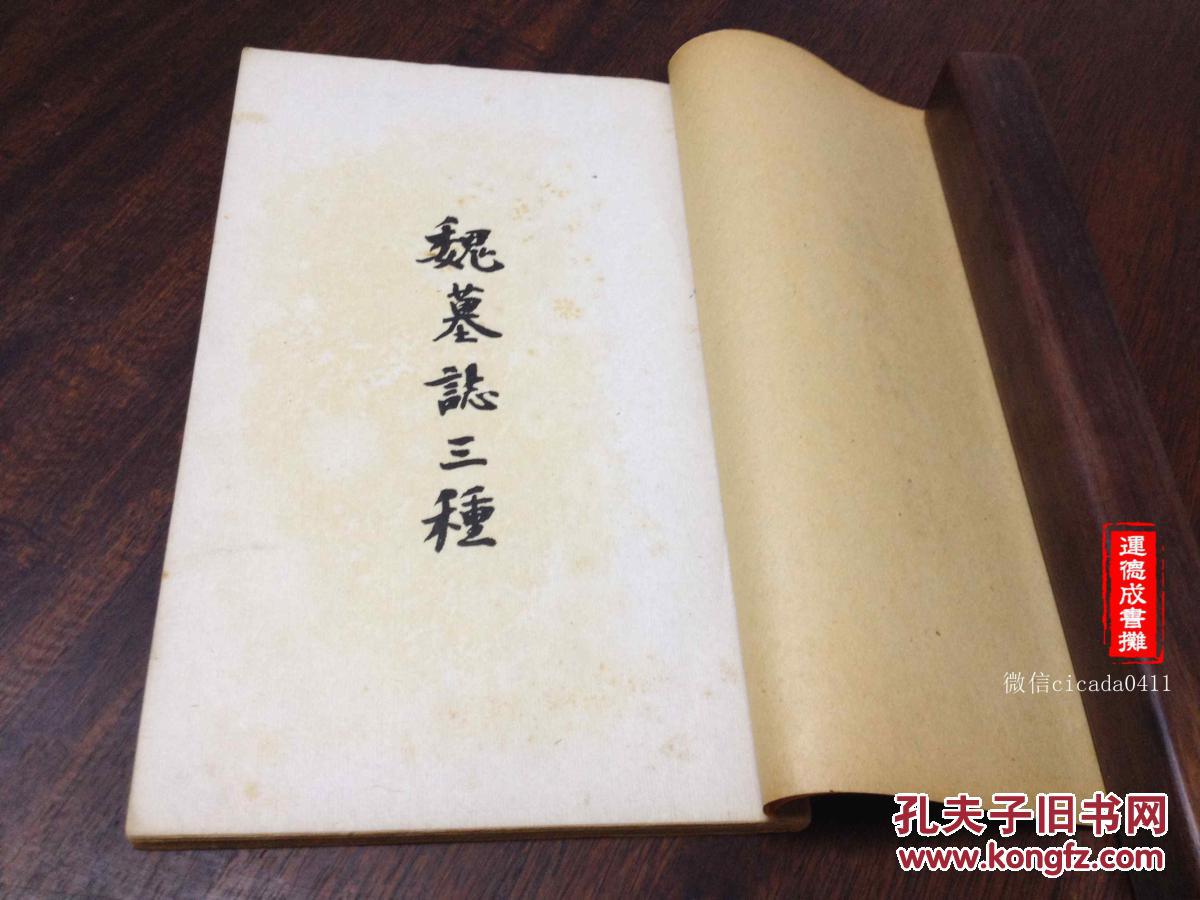 魏墓誌三種
運德成書攤
微信cicada0411
孔夫子旧书网
www.kongfz.com